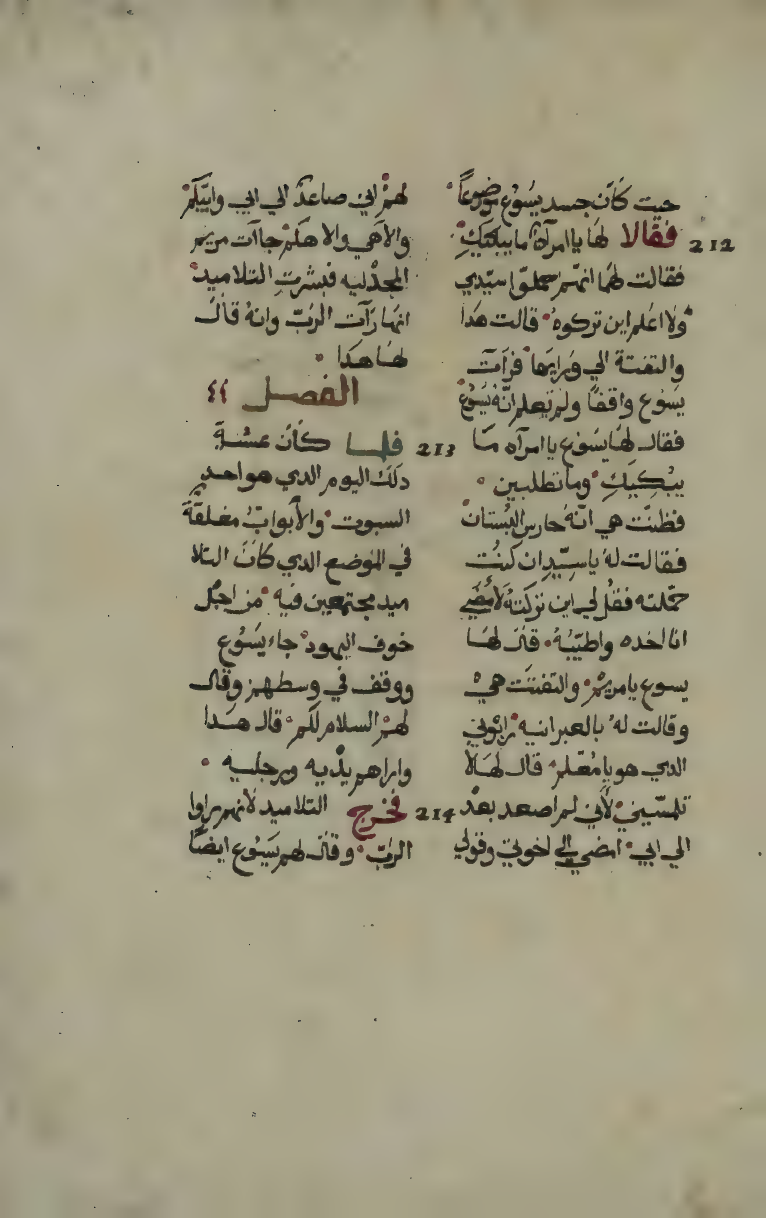 حيت كَان جسد يسُوع موضوعاً
212 فقالا لها ياامرآة ما يبكيكِ
فقالت لهما انهم حملوا سيّدي
ولا اعلم اين تركوه قالت هدا
والتفتة الي وَرايها فرآت
يسَوع واقفاً ولم تعلم انّه يَسُوع
فقال لها يسَوع يا امرآه مَا
يبْكيكِ وما تطلبين
فظنّت هي انّهُ حارس البُستان
فقالت له ياسيّد ان كُنت
حمّلته فقل لي اين تركتهُ لامُضي
انا اخده واطيّبهُ قال لهَا
يسوع يا مريمْ والتفتَت هيْ
وقالت لهُ بالعبرانيه رابّوني
الدي هو يا مُعَلم قال لهَا لا
تلمسيني لأني لم اصعد بعدْ
الي ابي امضي الي اخوتي وقولي
لهمْ اني صاعدٌ الي ابي وابيكم
والاهي والاهكم جاآت مريم
المجدْليه فبشرتِ التلاميد
انها رَآت الربّ وانهُ قال
لها هَدا
الفصل ٤٤
213 فلما كَان عشيةَ
دلك اليوم الدي هو احد
السبوت والأبوابُ مغلقةَ
في الموضع الدي كَانَ التلا
ميد مجتمعين فيه من اجْل
خوف اليهود جاء يسَوُع
ووقف في وسطهم وقال
لهم السلام لكم قال هَدا
واراهم يدْيه ورجليه
214 فخرج التلاميد لانهم راوا
الربّ وقال لهم يَسوُع ايضاً